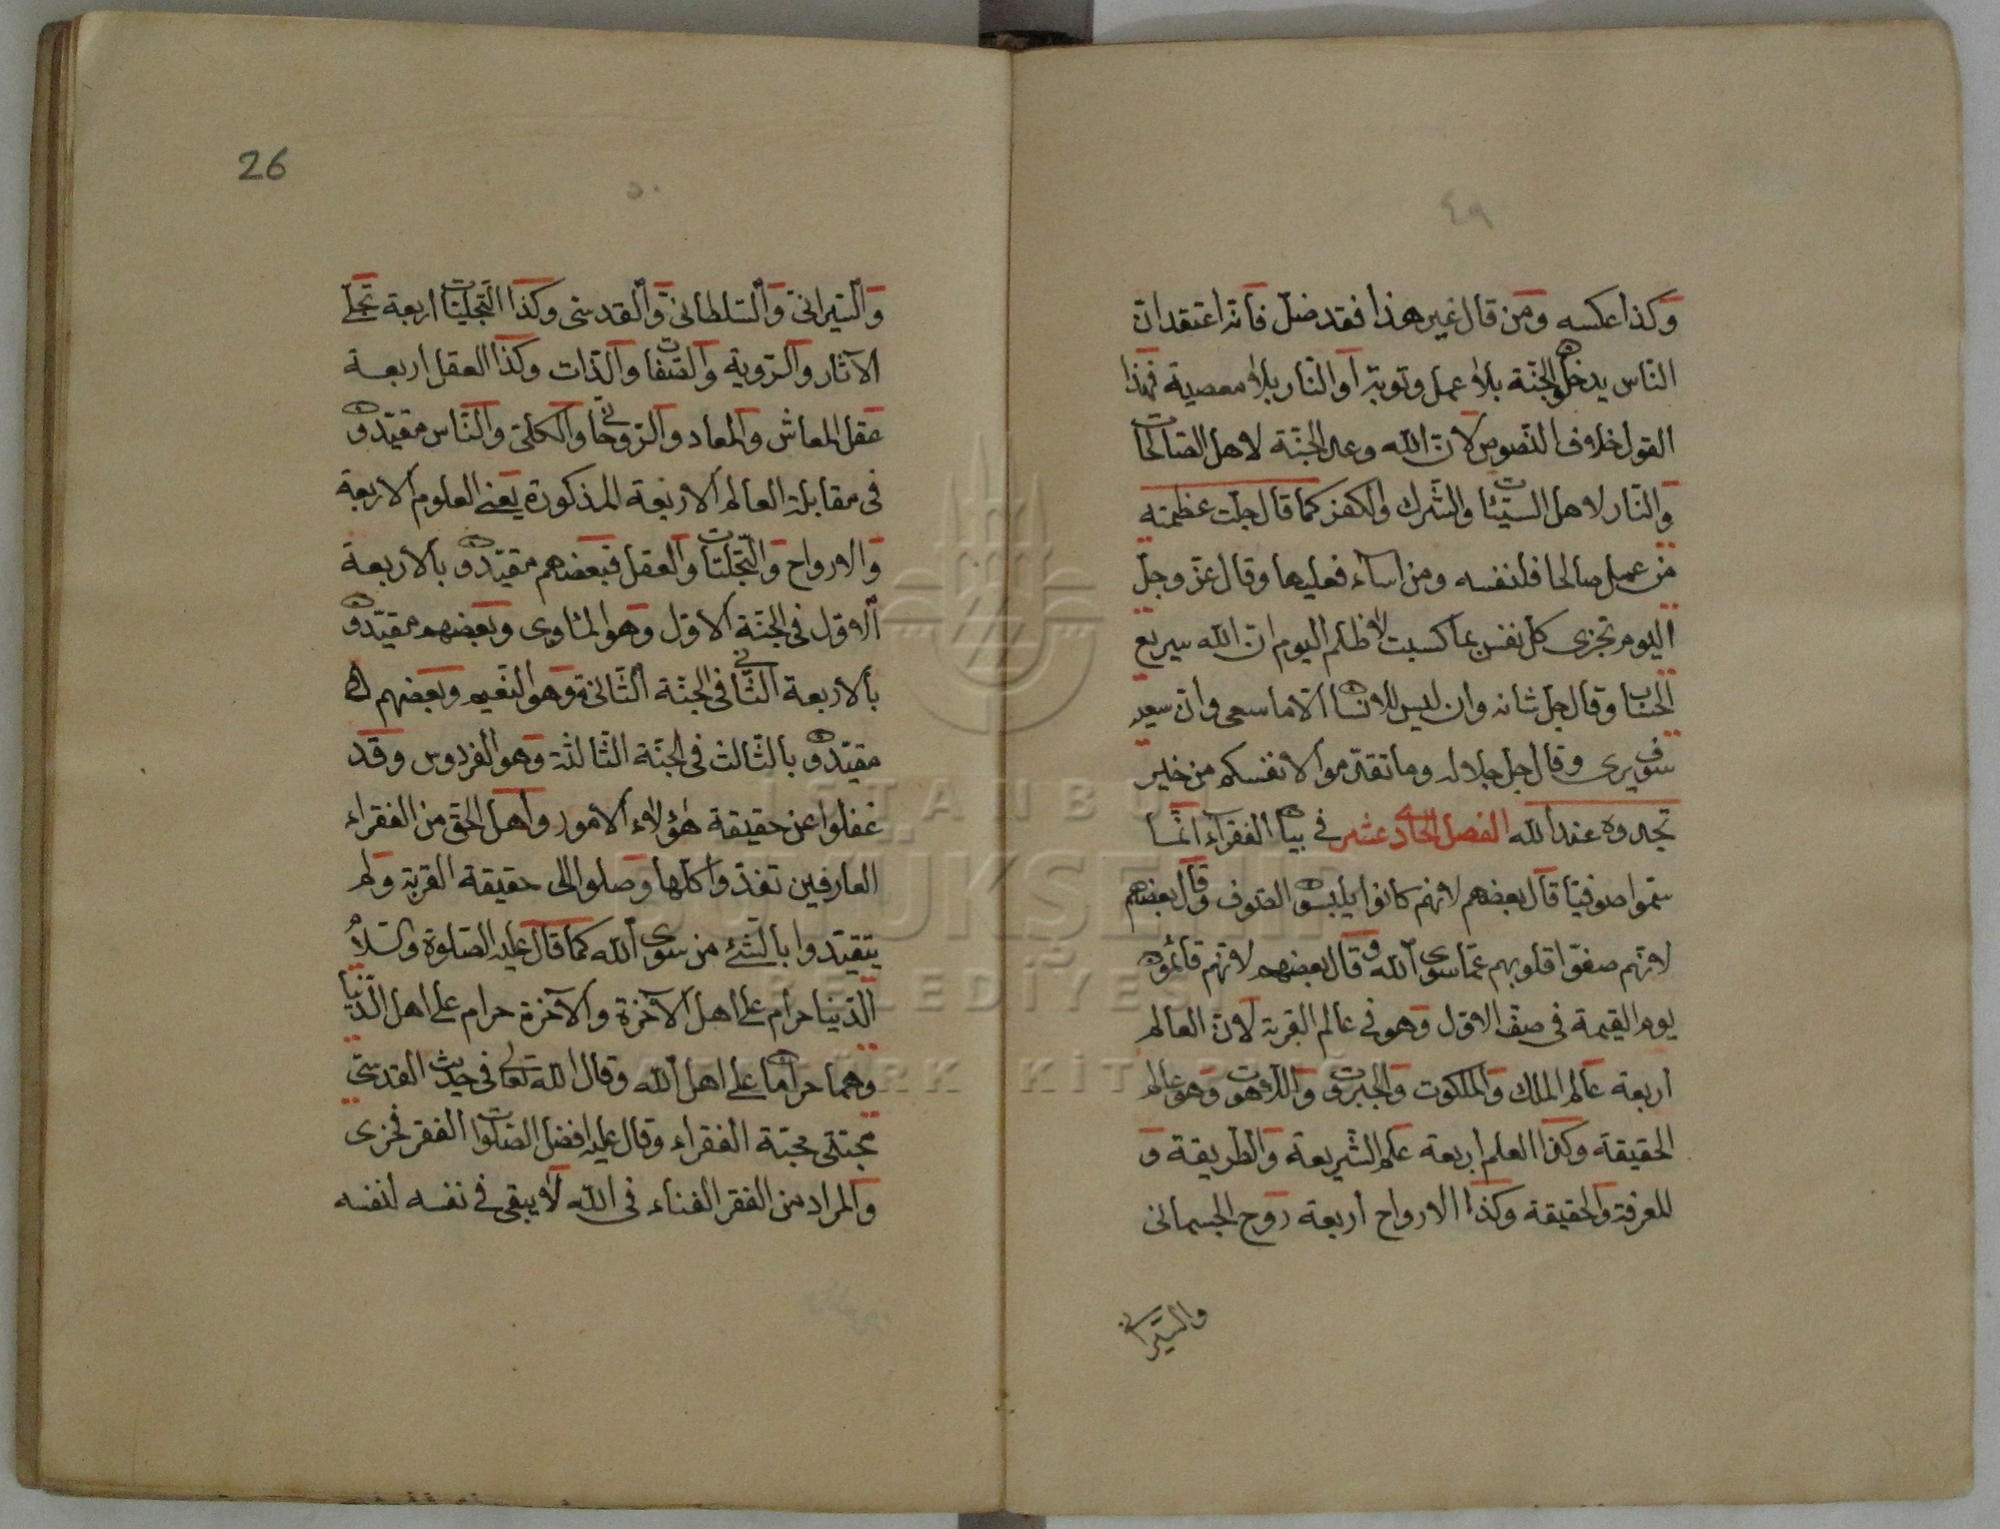 ٤٩
وكذا عكسه ومن قال غير هذا فقد ضل فانه اعتقد ان
الناس يدخلون الجنة بلا عمل وتوبة او النار بلا معصية فهذا
القول خلاف النصوص لان الله وعد الجنة لاهل الصالحات
والنار لاهل السيئات والشرك والكفر كما قال جلت عظمته
من عمل صالحا فلنفسه ومن اساء فعليها وقال عز وجل
اليوم تجزى كل نفس بما كسبت لا ظلم اليوم ان الله سريع
الحساب وقال جل شانه وان ليس للانسان الا ما سعى وان سعيه
سوف يرى وقال جل جلاله وما تقدموا لانفسكم من خير
تجدوه عند الله الفصل الحادى عشر في بيان الفقراء انما
سموا صوفيا قال بعضهم لانهم كانوا يلبسون الصوف وقال بعضهم
لانهم صفوا قلوبهم عما سوى الله وقال بعضهم لانهم قائمون
يوم القيمة في صف الاول وهو في عالم القربة لان العالم
اربعة عالم الملك والملكوت والجبروت واللاهوت وهو عالم
الحقيقة وكذا العلم اربعة علم الشريعة والطريقة و
المعرفة والحقيقة وكذا الارواح اربعة روح الجسمانى
والسيرانى
26
٥٠
والسيرانى والسلطانى والقدسى وكذا التجليات اربعة تجلى
الاثار والروية والصفات والذات وكذا العقل اربعة
عقل المعاش والمعاد والروحانى والكلى والناس مقيدون
فى مقابلة العالم الاربعة المذكورة يعنى العلوم الاربعة
والارواح والتجليات والعقل فبعضهم مقيدون بالاربعة
الاول فى الجنة الاول وهو الماوى وبعضهم مقيدون
بالاربعة الثانى فى الجنة الثانية وهو النعيم وبعضهم
مقيدون بالثالث فى الجنة الثالثة وهو الفردوس وقد
غفلوا عن حقيقة هؤلاء الامور واهل الحق من الفقراء
العارفين نفذوا كلها وصلوا الى حقيقة القربة ولم
يتقيدوا بالشئ من سوى الله كما قال عليه الصلوة والسلام
الدنيا حرام على اهل الاخرة والاخرة حرام على اهل الدنيا
وهما حرامان على اهل الله وقال الله تعالى فى حديث القدسى
محبتى محبة الفقراء وقال عليه افضل الصلوات الفقر فخرى
والمراد من الفقر الفناء فى الله لا يبقى فى نفسه لنفسه
İSTANBUL
BÜYÜKŞEHİR
BELEDİYESİ
ATATÜRK KİTAPLIĞI